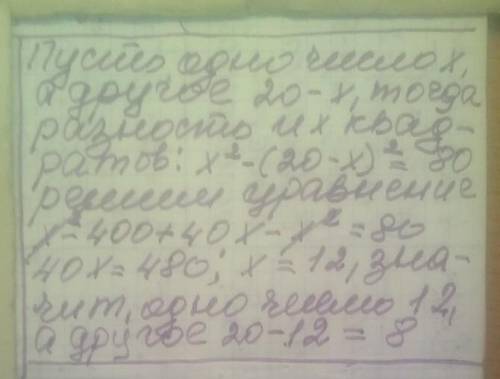 Пусть одно число х,
а другое 20-х, тогда
разность их квад-
ратов: х²-(20-х)²=80
решим уравнение
х²-400+40х-х²=80
40х=480; х=12, зна-
чит, одно число 12,
а другое 20-12=8